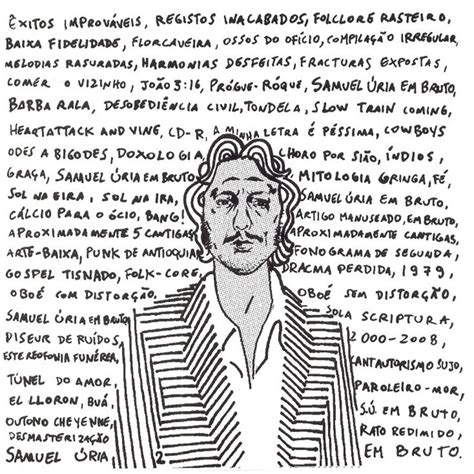 ÊXITOS IMPROVÁVEIS, REGISTOS INACABADOS, FOLCLORE RASTEIRO,
BAIXA FIDELIDADE, FLORCAVEIRA, OSSOS DO OFÍCIO, COMPILAÇÃO IRREGULAR,
MELODIAS RASURADAS, HARMONIAS DESFEITAS, FRACTURAS EXPOSTAS,
COMER O VIZINHO, JOÃO 3:16, PRÓGUE-RÓQUE, SAMUEL ÚRIA EM BRUTO,
BARBA RALA, DESOBEDIÊNCIA CIVIL, TONDELA, SLOW TRAIN COMING,
HEARTATTACK AND VINE, CD-R, A MINHA LETRA É PÉSSIMA, COWBOYS
ODES A BIGODES, DOXOLOGIA CHORO POR SIÃO, ÍNDIOS,
GRAÇA, SAMUEL ÚRIA EM BRUTO MITOLOGIA GRINGA, FÉ,
SOL NA EIRA, SOL NA IRA, SAMUEL ÚRIA EM BRUTO,
CÁLCIO PARA O ÓCIO, BANG! ARTIGO MANUSEADO, EM BRUTO,
APROXIMADAMENTE 5 CANTIGAS APROXIMADAMENTE CANTIGAS,
ARTE-BAIXA, PUNK DE ANTIOQUIA FONOGRAMA DE SEGUNDA,
GOSPEL TISNADO, FOLK-CORE, DRACMA PERDIDA, 1979,
OBOÉ COM DISTORÇÃO, OBOÉ SEM DISTORÇÃO,
SAMUEL ÚRIA EM BRUTO SOLA SCRIPTURA,
DISEUR DE RUÍDOS, 2000-2008,
ESTEREOFONIA FUNÉREA, CANTAUTORISMO SUJO,
TÚNEL DO AMOR, PAROLEIRO-MOR,
EL LLORON, BUÁ, S.Ú. EM BRUTO,
OUTONO CHEYENNE, RATO REDIMIDO,
DESMASTERIZAÇÃO EM BRUTO.
SAMUEL ÚRIA 2